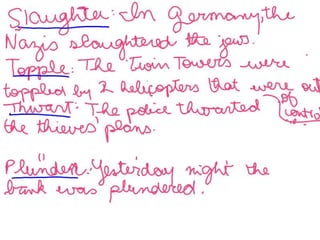 Slaughter:- In Germany, the
Nazis slaughtered the jews.
Topple: The Twin Towers were
toppled by 2 helicopters that were out
of
Thwart: The police thwarted
the thieves' plans.
Plunder:- Yesterday night the
bank was plundered.